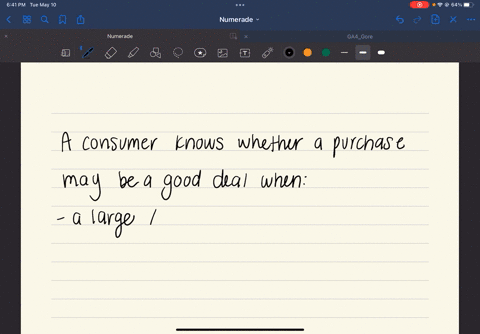 6:41 PM Tue May 10
64%
Numerade
Numerade
GA4_Gore
A consumer knows whether a purchase
may be a good deal when:
- a large /